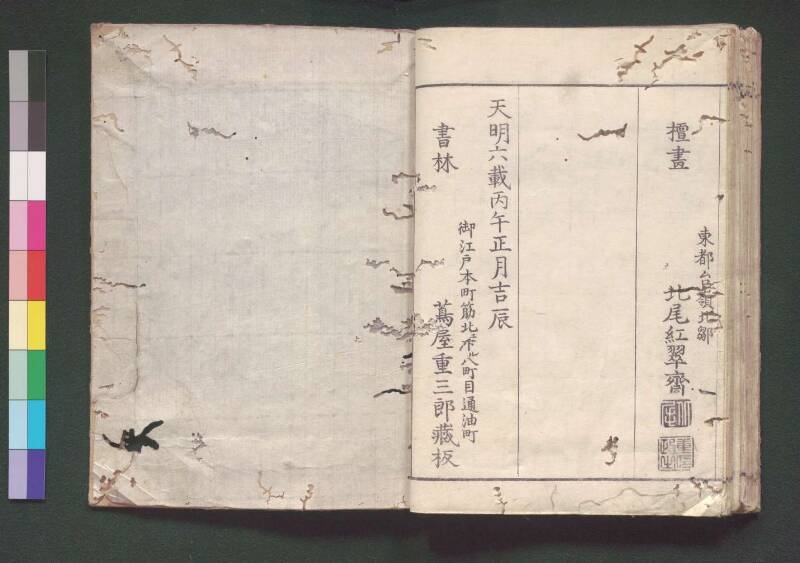 東都台嶺北鄒
擅畫
北尾紅翠齋
天明六載丙午正月吉辰
御江戸本町筋北八町目通油町
書林
蔦屋重三郎藏板